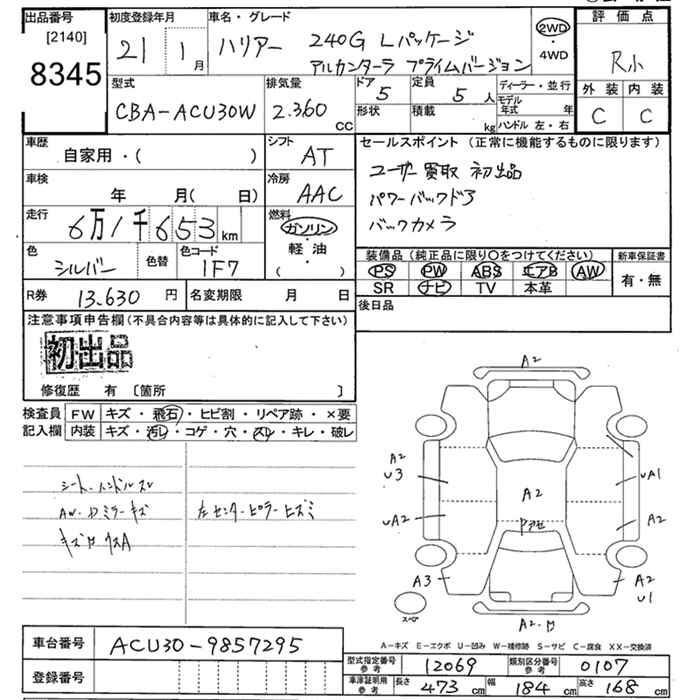 出品番号
[2140]
8345
初度登録年月
21 1月
車名・グレード
ハリアー 240G Lパッケージ
アルカンターラ プライムバージョン
2WD
・
4WD
評価点
R小
外装 内装
C C
型式
CBA-ACU30W
排気量
2.360
CC
ドア
5
定員
5人
形状
積載
kg
ディーラー・並行
モデル年式 年
ハンドル 左・右
車歴
自家用・( )
シフト
AT
車検
年 月( 日)
冷房
AAC
走行
6万1千653km
燃料
ガソリン
・
軽・油
・
( )
色
シルバー
色替
色コード
1F7
セールスポイント (正常に機能するものに限ります)
ユーザー買取 初出品
パワーバックドア
バックカメラ
装備品 (純正品に限り○をつけてください)
PS PW ABS エアB AW
SR ナビ TV 本革
新車保証書
有・無
R券 13.630円
名変期限 月 日
後日品
注意事項申告欄 (不具合内容等は具体的に記入して下さい)
初出品
修復歴 有 〔箇所 〕
検査員
記入欄
FW キズ・飛石・ヒビ割・リペア跡・×要
内装 キズ・汚レ・コゲ・穴・スレ・キレ・破レ
シート・ハンドルスレ
AW・ドミラーキズ
左センターピラーヒズミ
A2
A2
U3
UA2
A3
A2
UA1
A2
A2
U1
スペア
A-キズ E-エクボ U-凹み W-補修跡 S-サビ C-腐食 XX-交換済
車台番号 ACU30-9857295
登録番号
型式指定番号 参考 12069
類別区分番号 参考 0107
車庫証明用 参考 長さ 473cm 幅 184cm 高さ 168cm